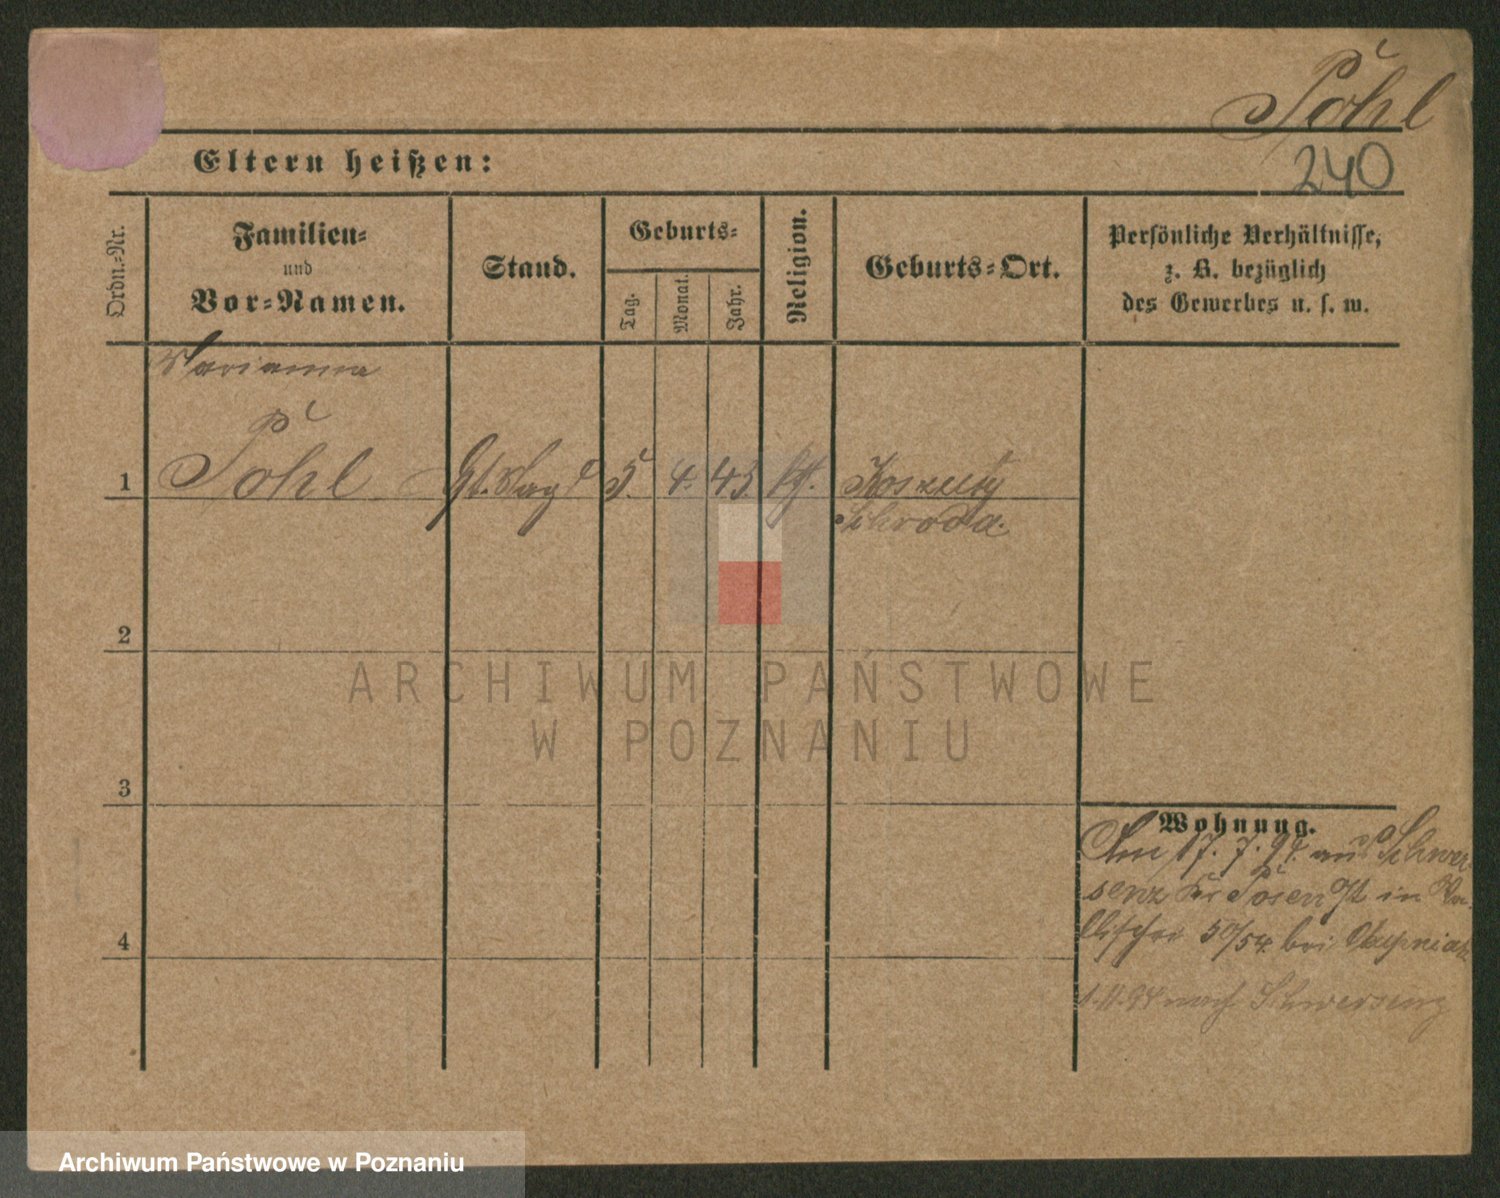 Pohl
240
Eltern heißen:
Ordn.-Nr.
Familien-
und
Vor-Namen.
Stand.
Geburts-
Tag.
Monat.
Jahr.
Religion.
Geburts-Ort.
Persönliche Verhältnisse,
z. B. bezüglich
des Gewerbes u. s. w.
Marianna
1 Pohl 5. 4. 43.
Schroda.
2
3
4
Wohnung.
Am 17. 7. 94. aus Schwer-
senz Kr Posen Ost in Wa-
llischei 50/54 bei
1.11.94 nach Schwersenz
ARCHIWUM PAŃSTWOWE
W POZNANIU
Archiwum Państwowe w Poznaniu